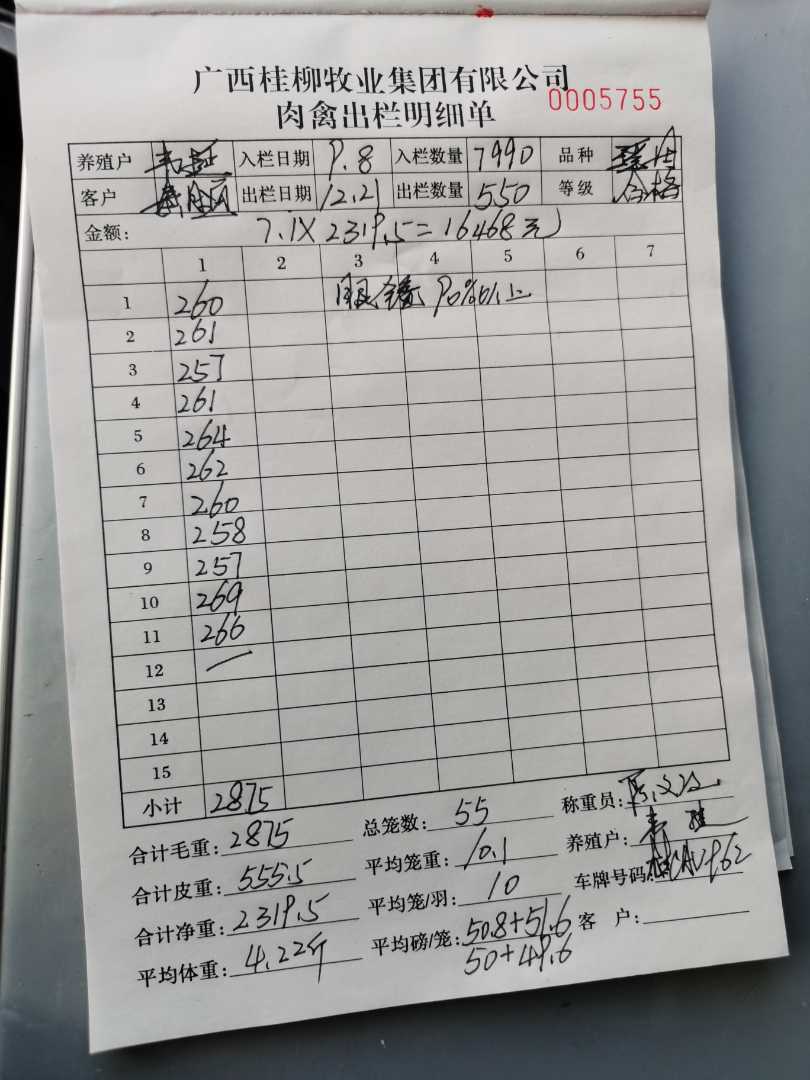 广西桂柳牧业集团有限公司
肉禽出栏明细单 0005755
养殖户 入栏日期 9.8 入栏数量 7990 品种
客户 出栏日期 12.21 出栏数量 550 等级 合格
金额: 7.1X2319.5=16468元
1 2 3 4 5 6 7
1 260 眼镜 90%以上
2 261
3 257
4 261
5 264
6 262
7 260
8 258
9 257
10 269
11 266
12 一
13
14
15
小计 2875
合计毛重: 2875 总笼数: 55 称重员:
合计皮重: 555.5 平均笼重: 10.1 养殖户:
合计净重: 2319.5 平均笼/羽: 10 车牌号码:
平均体重: 4.22斤 平均磅/笼: 50.8+51.6 客户:
50+49.6